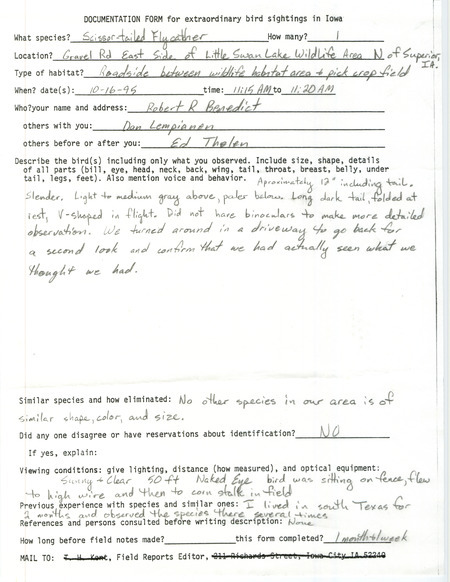 DOCUMENTATION FORM for extraordinary bird sightings in Iowa
What species? Scissor-tailed Flycatcher How many? 1
Location? Gravel Rd East Side of Little Swan Lake Wildlife Area N of Superior, IA.
Type of habitat? Roadside between wildlife habitat area & pick crop field
When? date(s): 10-16-95 time: 11:15 AM to 11:20 AM
Who? your name and address: Robert R Benedict
others with you: Dan Lempianen
others before or after you: Ed Thelen
Describe the bird(s) including only what you observed. Include size, shape, details
of all parts (bill, eye, head, neck, back, wing, tail, throat, breast, belly, under
tail, legs, feet). Also mention voice and behavior. Aproximately 12" including tail.
Slender. Light to medium gray above, paler below. Long dark tail, folded at
rest, V-shaped in flight. Did not have binoculars to make more detailed
observation. We turned around in a driveway to go back for
a second look and confirm that we had actually seen what we
thought we had.
Similar species and how eliminated: No other species in our area is of
similar shape, color, and size.
Did any one disagree or have reservations about identification? NO
If yes, explain:
Viewing conditions: give lighting, distance (how measured), and optical equipment:
Sunny & Clear 50 ft Naked Eye bird was sitting on fence, flew
to high wire and then to corn stalk in field
Previous experience with species and similar ones: I lived in south Texas for
2 months and observed the species there several times
References and persons consulted before writing description: None
How long before field notes made? this form completed? 1 month + 1 week
MAIL TO: T. H. Kent, Field Reports Editor, 211 Richards Street, Iowa City IA 52240